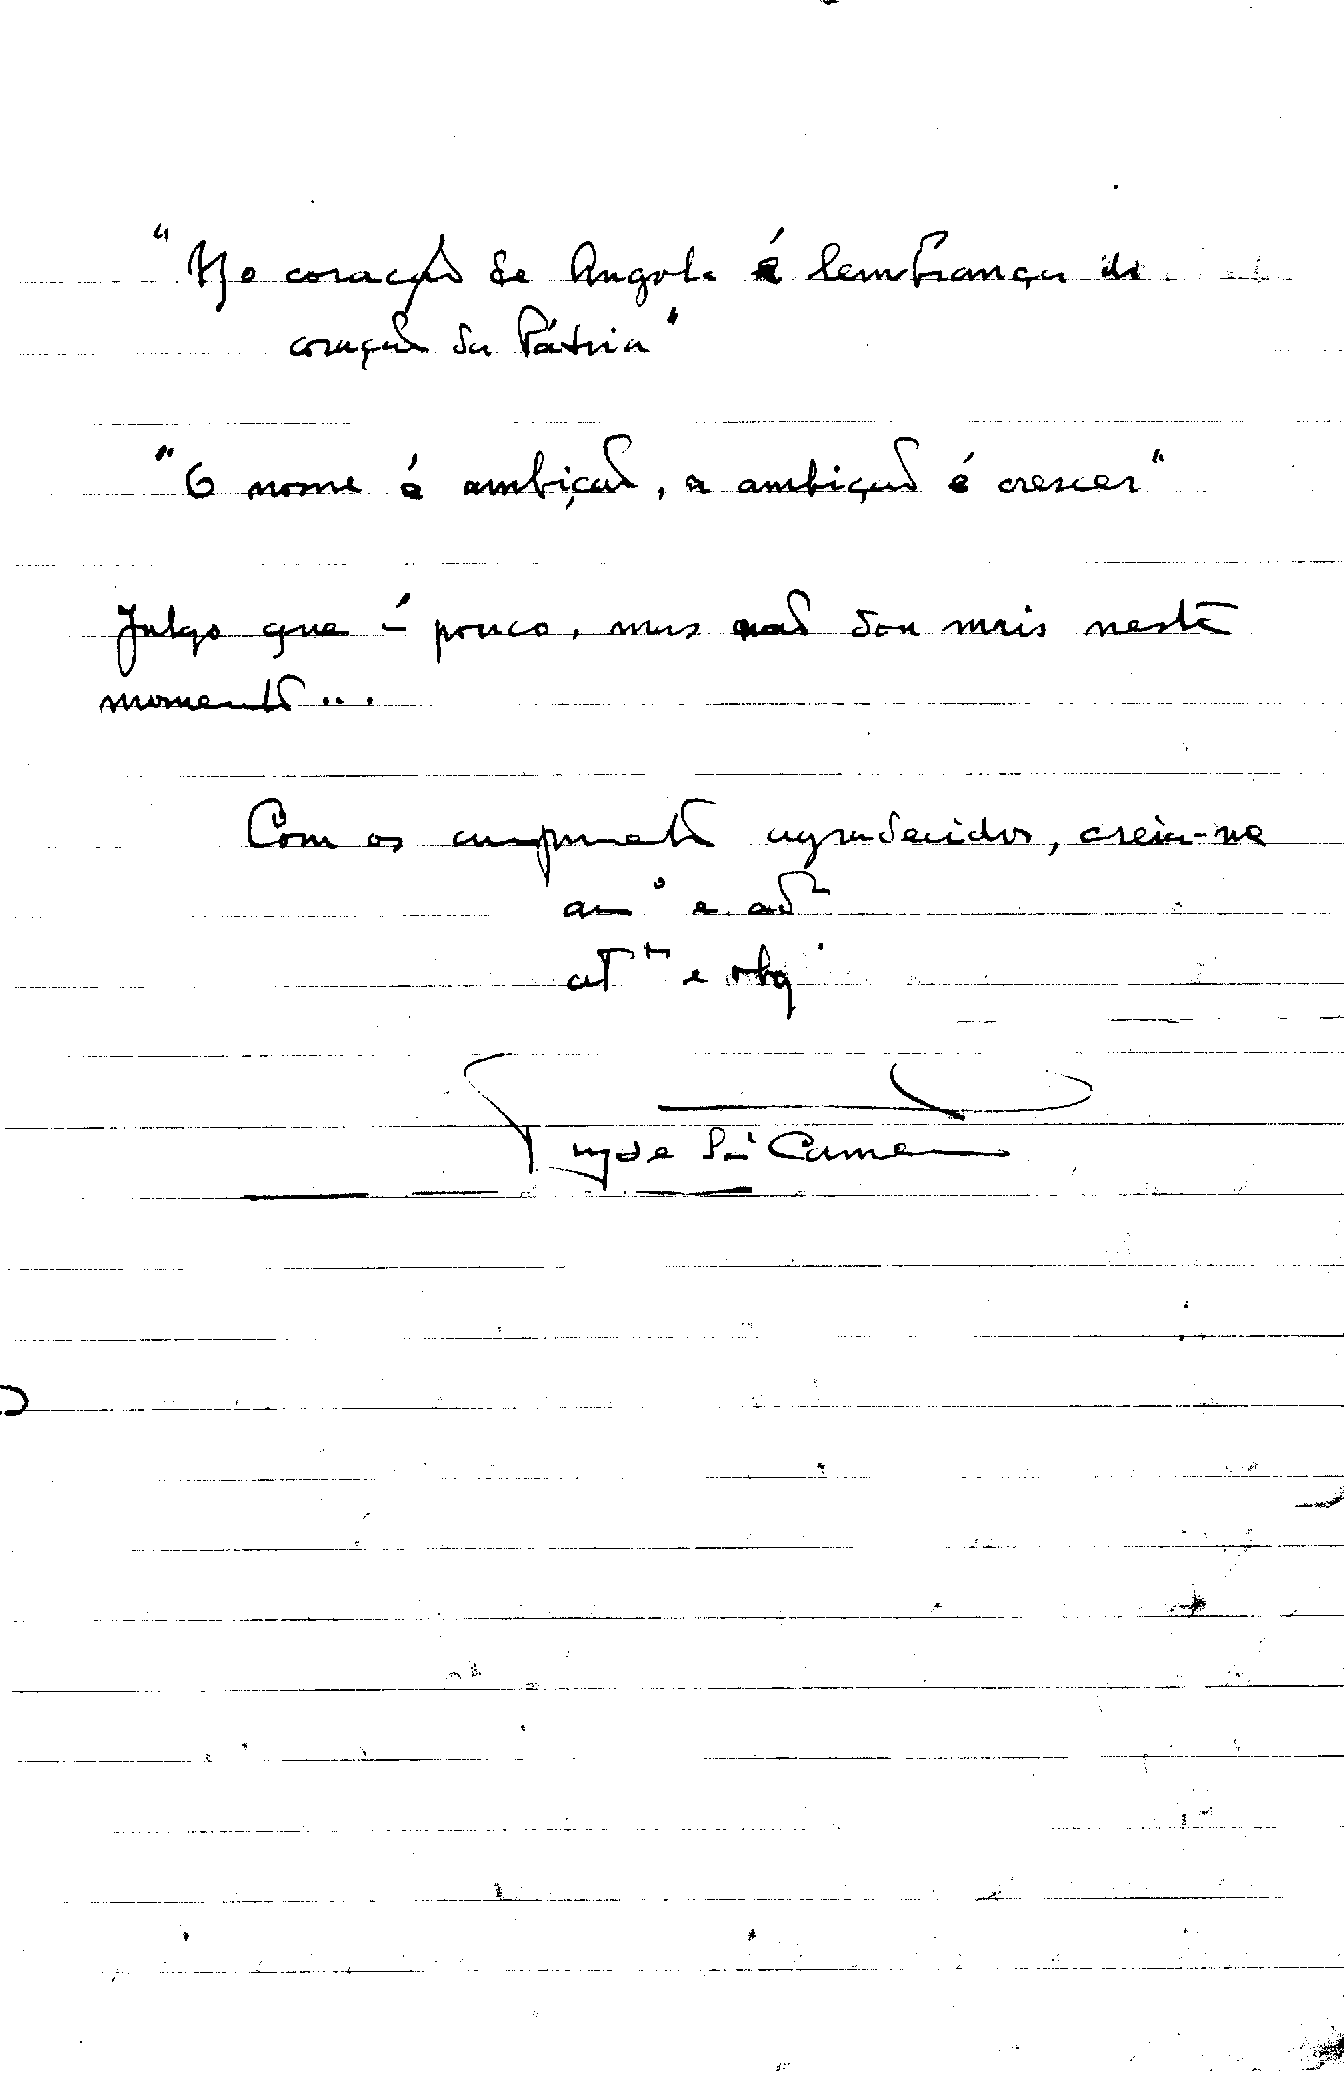 "No coração de Angola é lembrança do
coração da Pátria"
"O nome é ambição, a ambição é crescer"
Julgo que é pouco, mas não dou mais neste
momento...
Com os cumprimentos agradecidos, creia-me
am.º e ad.
att.º e obg.
Ruy de Sá Carneiro